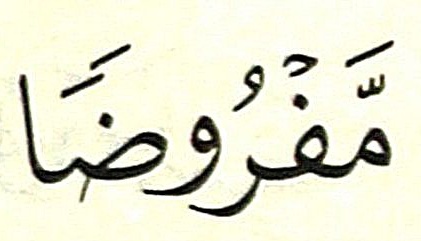 مَّفۡرُوضًا